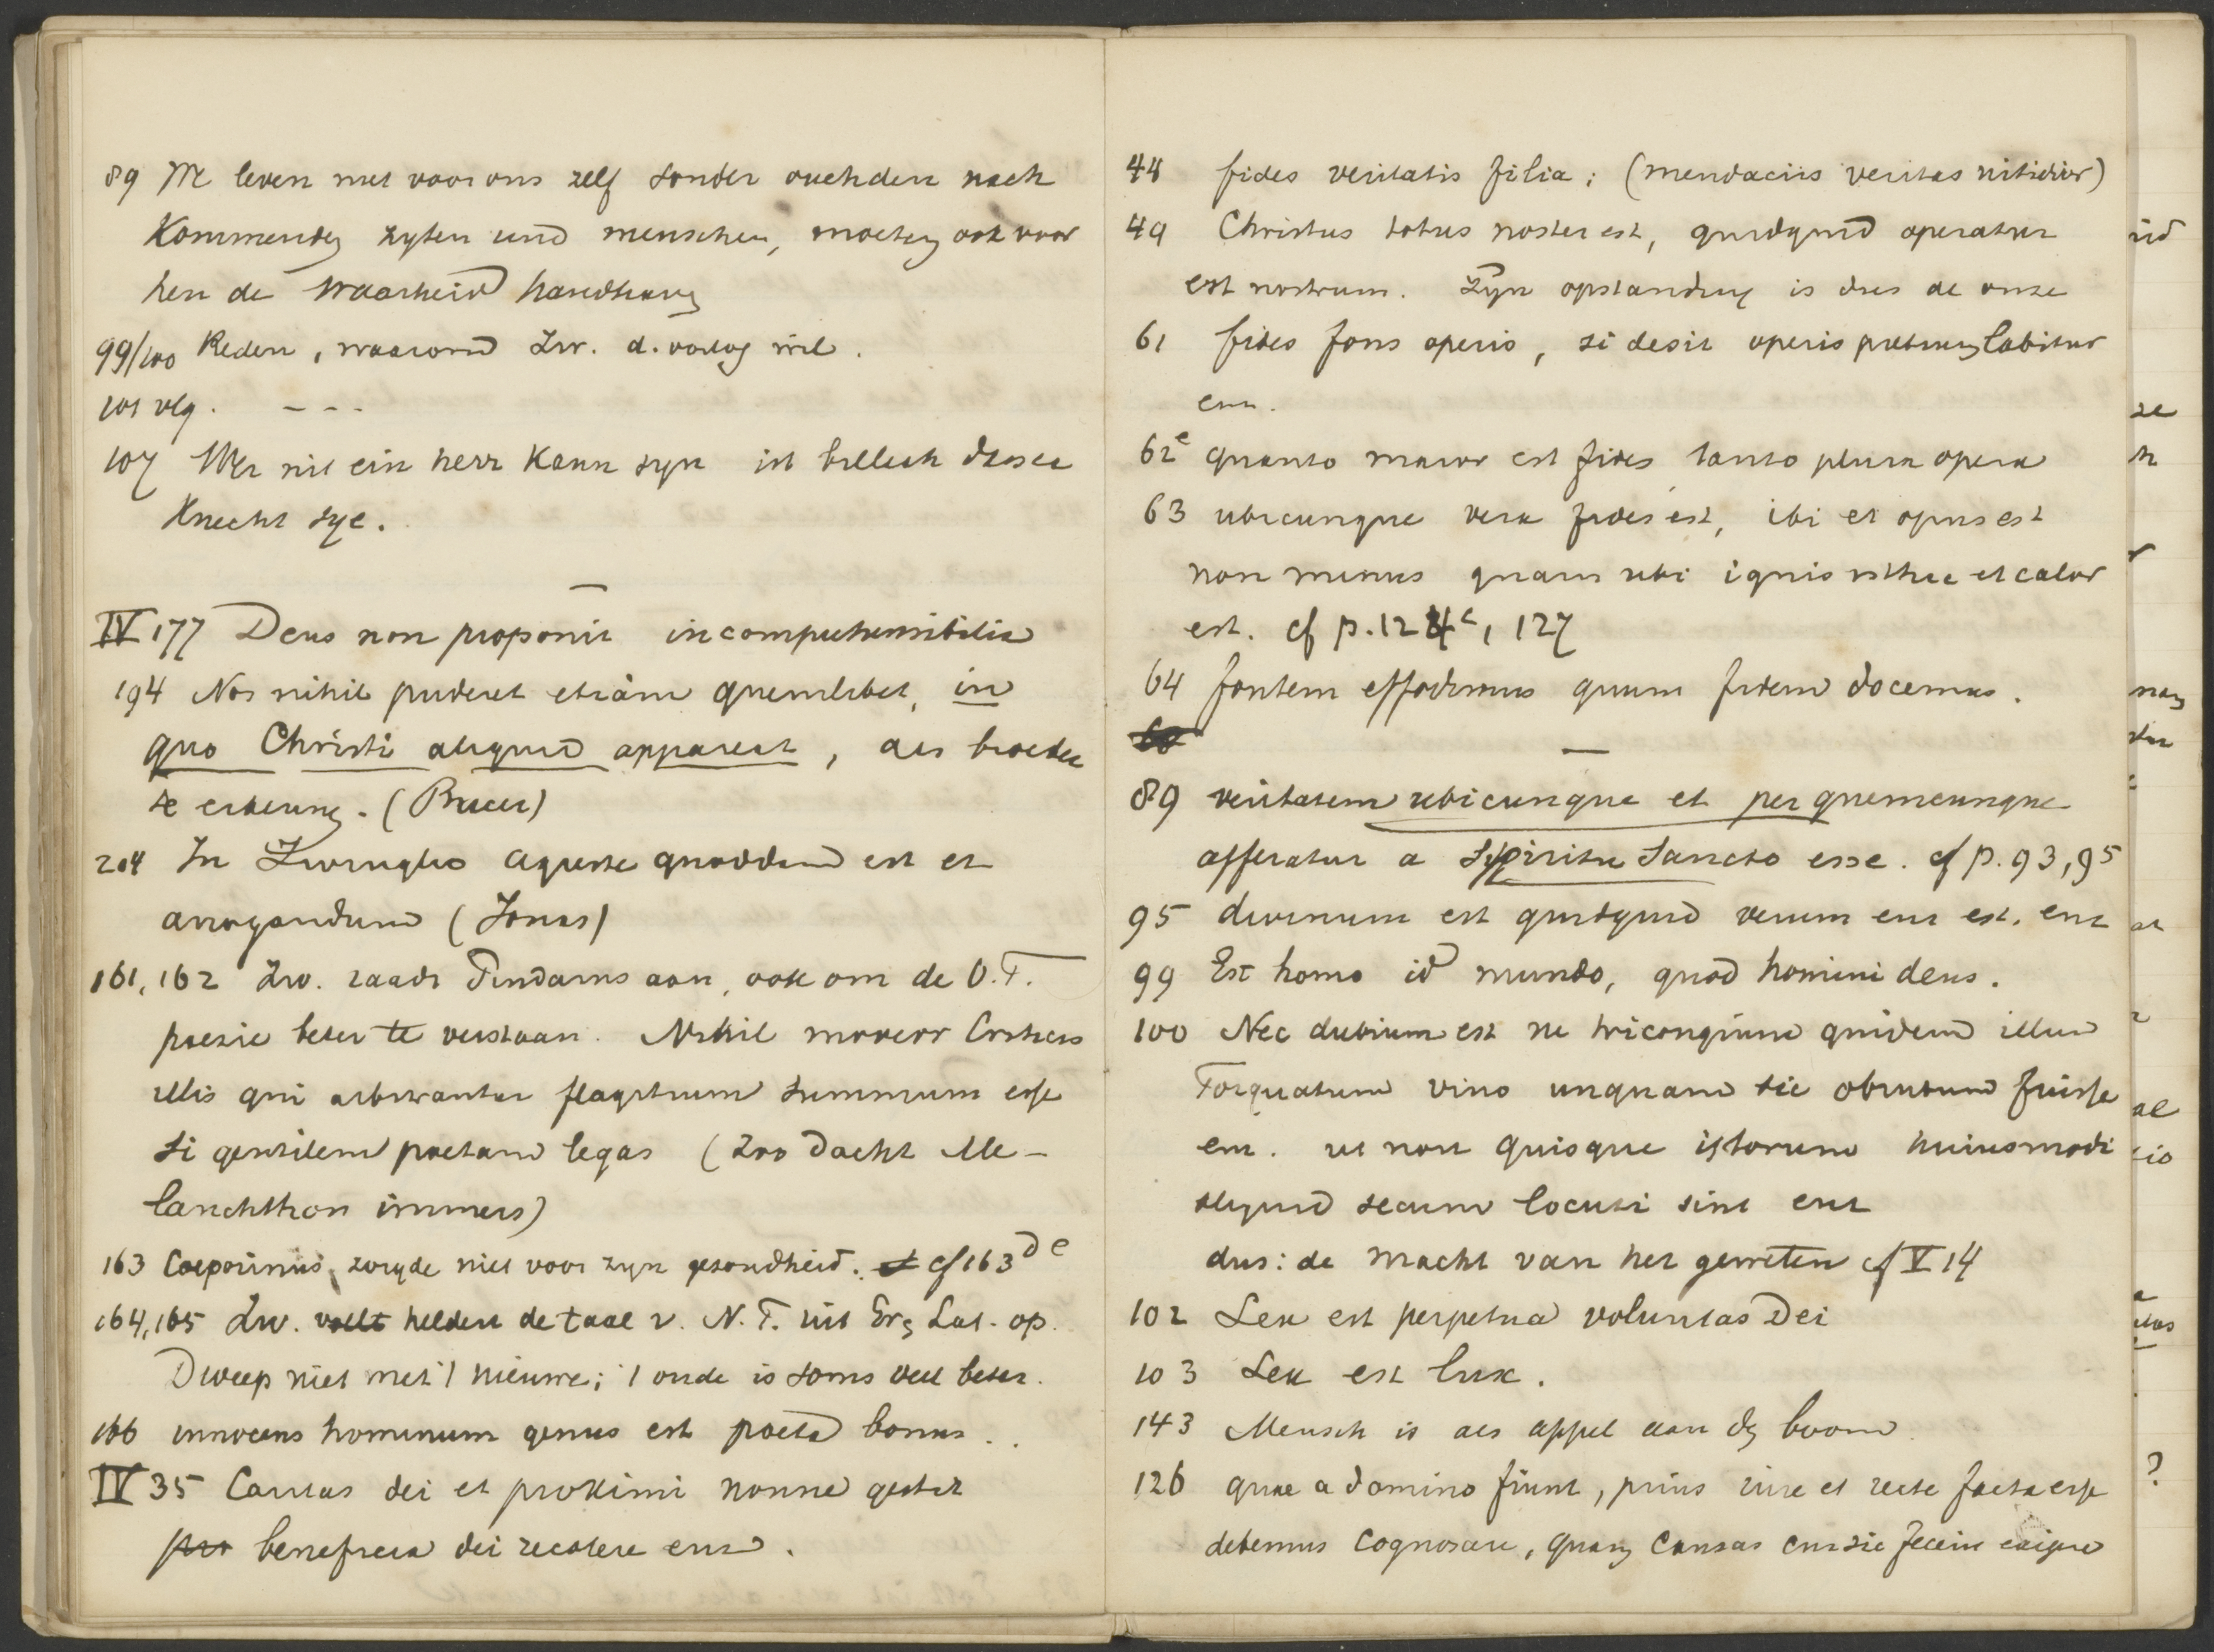 89 We leven niet voor ons zelf sonder ouch den nach
Kommenden zyten und menschen, moeten ook voor
hen de waarheid handhaven
99/100 Reden, waarom Zw. d. oorlog wil.
101 vlg. - - -
107 Wer nit ein herr kann syn ist billich dasser
Knecht sye.
IV 177 Deus non proponit incomprehensibilia
194 Nos nihil puderet etiam quemlibet, in
quo Christi aliquid appareat, als broeder
te erkennen. (Bucer)
204 In Zwinglio agreste quoddam est et
arrogandum (Jonas)
161, 162 Zw. raadt Pindarus aan, ook om de O.T.
poesie beter te verstaan. Nihil moveor
illis qui arbitrantur flagitium summum esse
si gentilem poetam legas (zoo dacht Me-
lanchthon immers)
163 Ceporinus zorgde niet voor zyn gezondheid. cf 163 d e
164,165 Zw. heldert de taal v. N.T. uit Gr. en Lat. op.
Dweep niet met 't nieuwe; 't oude is soms veel beter.
166 innocens hominum genus est poeta bonus.
IV 35 Caritas dei et proximi nonne gestit
pro beneficia dei recolere enz.
44 fides veritatis filia; (mendaciis veritas nitidior)
49 Christus totus noster est, quidquid operatur
est nostrum. Zyn opstanding is dus de onze
61 fides fons operis, si desit operis pretium labitur
enz.
62e quanto maior est fides tanto plura opera
63 ubicunque vera fides est, ibi et opus est
non minus quam ubi ignis isthic et calor
est. cf p. 124c, 127
64 fontem effodimus quum fidem docemus.
—
89 veritatem ubicunque et per quemcunque
afferatur a Spiritu Sancto esse. cf p. 93, 95
95 divinum est quidquid verum enz est. enz
99 Est homo id mundo, quod homini deus.
100 Nec dubium est ne tricongium quidem illum
Torquatum vino unquam sic obrutum fuisse
enz. ut non quisque istorum huiusmodi
aliquid secum locuti sint enz
dus: de macht van het geweten cf V 14
102 Lex est perpetua voluntas Dei
103 Lex est lux.
143 Mensch is als appel aan den boom.
126 quae a domino fiunt, prius iure et recte facta esse
debemus cognoscere, quam causas cur sic fecerit exigere